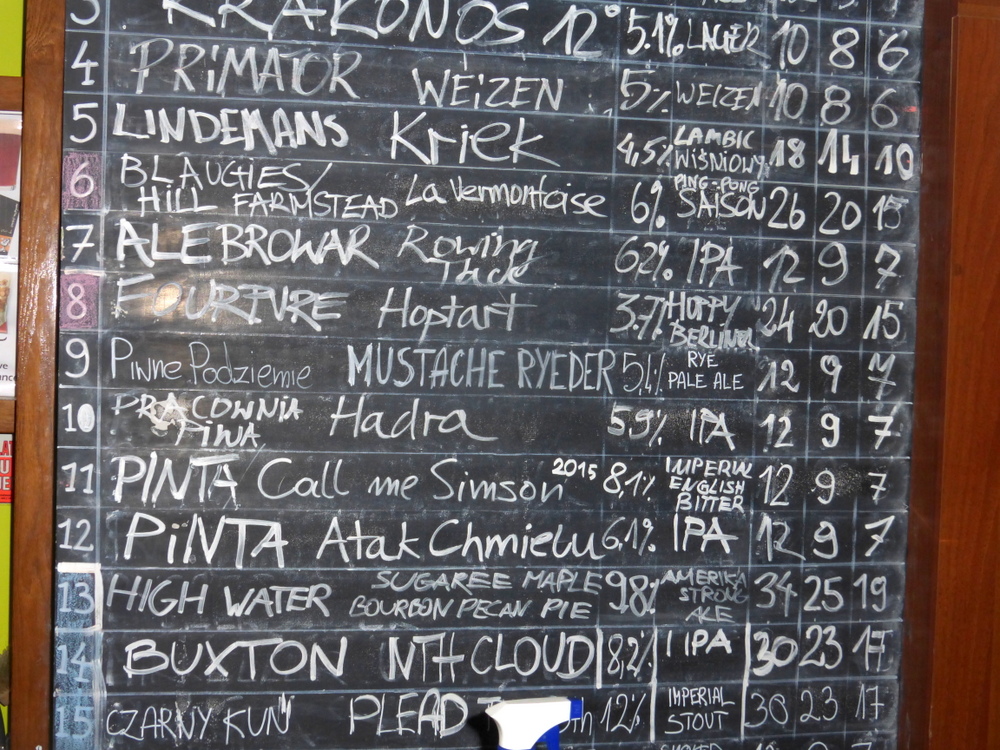 3 KRAKONOS 12° 5.1% LAGER 10 8 6
4 PRiMATOR WEiZEN 5% WEIZEN 10 8 6
5 LINDEMANS Kriek 4,5% LAMBIC WIŚNIOWY 18 14 10
6 BLAUGIES/ HILL FARMSTEAD La Vermontoise 6% PING-PONG SAISON 26 20 15
7 ALEBROWAR Rowing Jack 62% IPA 12 9 7
8 FOURPURE Hoptart 3.7% HOPPY BERLINER 24 20 15
9 Piwne Podziemie MUSTACHE RYEDER 5,1% RYE PALE ALE 12 9 7
10 PRACOWNIA PIWA Hadra 5.9% IPA 12 9 7
11 PINTA Call me Simson 2015 8,1% IMPERIAL ENGLISH BITTER 12 9 7
12 PiNTA Atak Chmielu 6,1% IPA 12 9 7
13 HIGH WATER SUGAREE MAPLE BOURBON PECAN PIE 98% AMERIKA STRONG ALE 34 25 19
14 BUXTON NTH CLOUD 8,2% IIPA 30 23 17
15 CZARNY KUŃ PLEAD 12% IMPERIAL STOUT 30 23 17